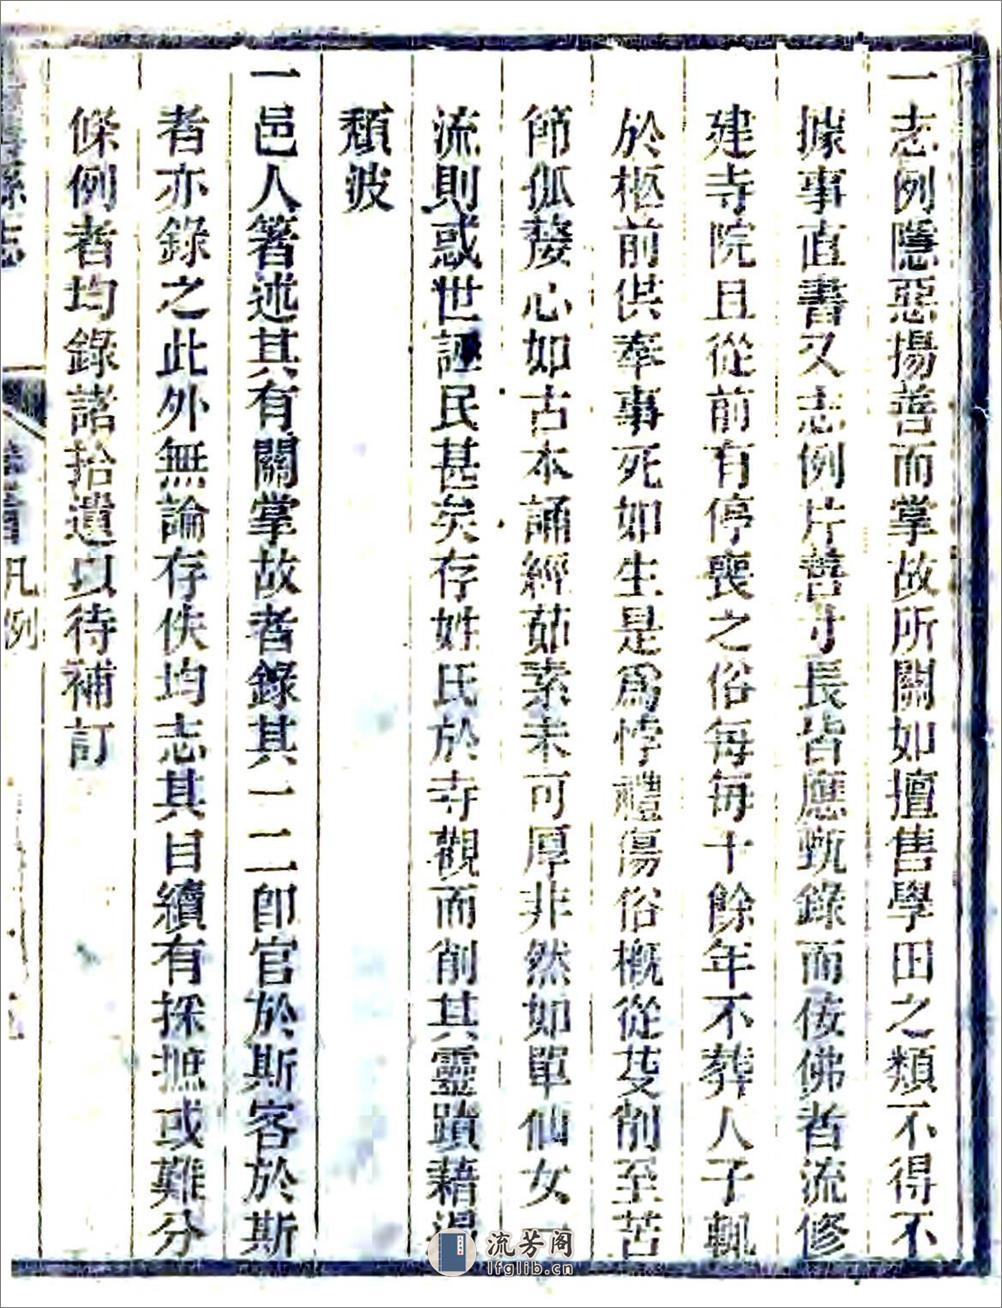 一志例隱惡揚善而掌故所關如擅售學田之類不得不
據事直書又志例片善寸長皆應甄錄而佞佛者流修
建寺院且從前有停喪之俗每每十餘年不葬人子輒
於柩前供奉事死如生是爲悖禮傷俗槪從芟削至苦
節孤嫠心如古本誦經茹素未可厚非然如單仙女一
流則惑世誣民甚矣存姓氏於寺觀而削其靈蹟藉
頽波
一邑人箸述其有關掌故者錄其一二卽官於斯客於斯
者亦錄之此外無論存佚均志其目續有採摭或難分
條例者均錄諸拾遺以待補訂
縣志
凡例
流芳阁
lfglib.cn